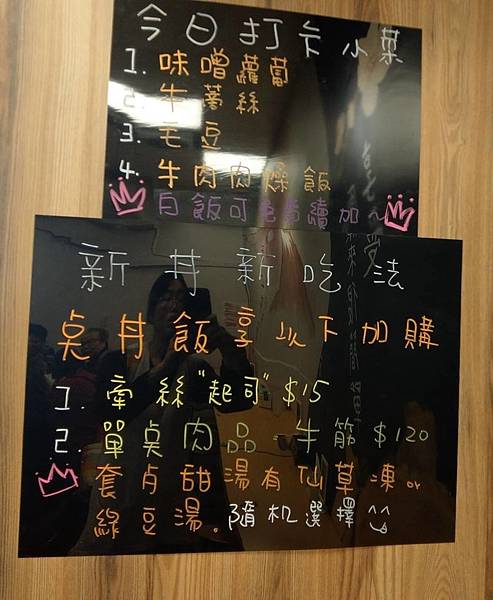 今日打卡小菜
1. 味噌蘿蔔
2. 牛蒡絲
3. 毛豆
4. 牛肉肉燥飯
白飯可免費續加～
新丼新吃法
桌丼飯享以下加購
1. 牽絲"起司"$15
2. 單桌肉品-牛筋 $120
套片甜湯有仙草凍or
綠豆湯.隨机選擇